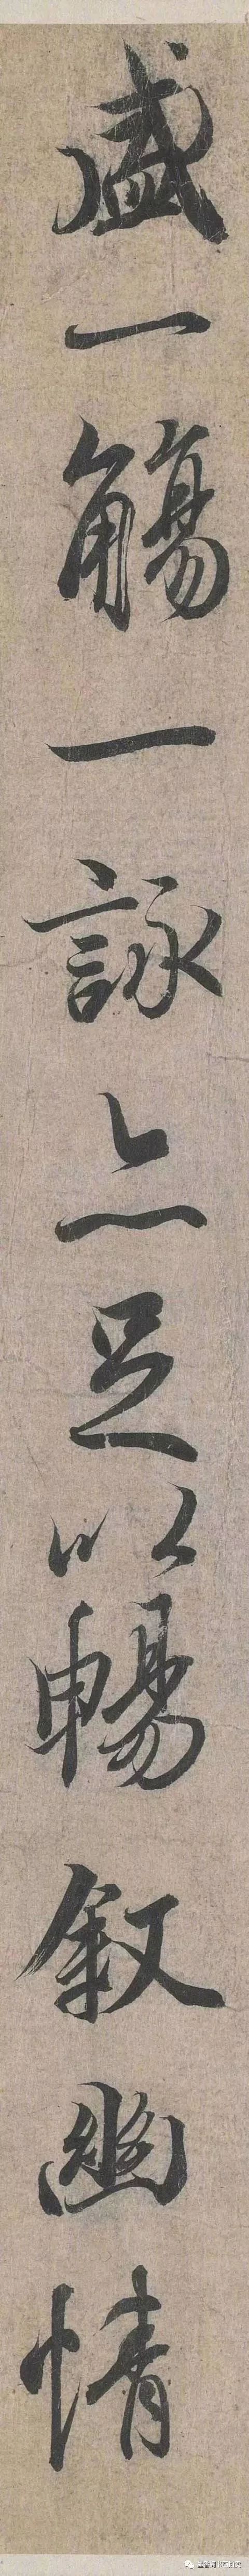 盛一觴一詠亦足以暢叙幽情